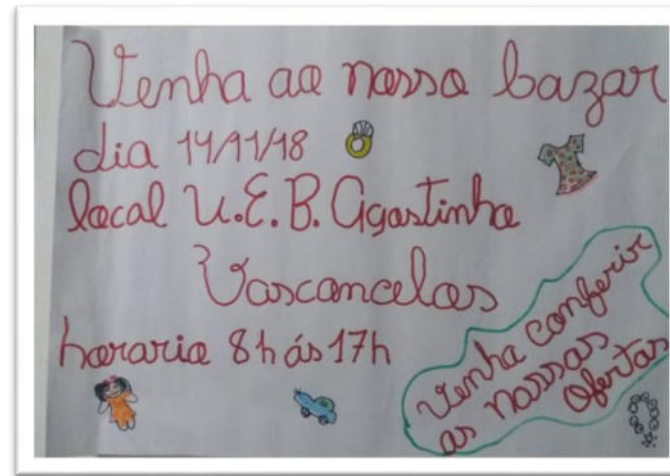 Venha ao nosso bazar
dia 14/11/18
local U.E.B. Agostinho
Vasconcelos
horario 8h ás 17h
Venha conferir
as nossas
ofertas